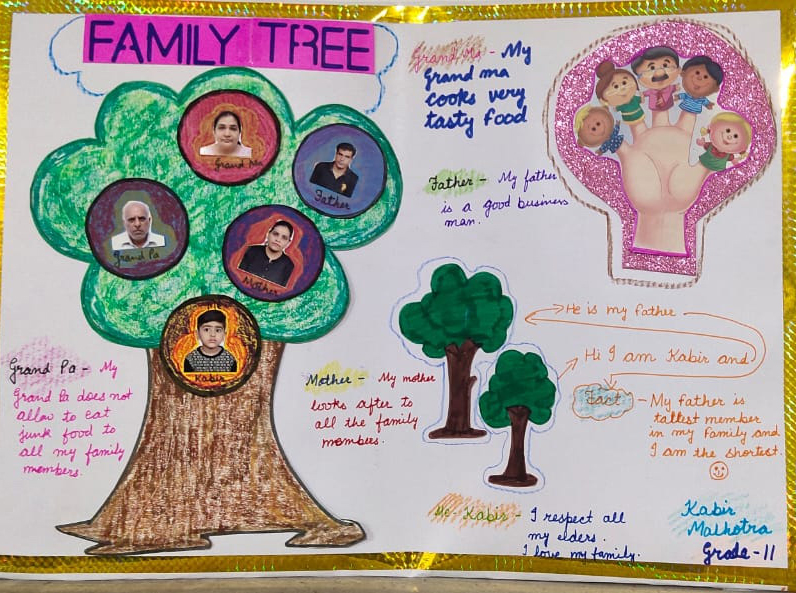 FAMILY TREE
Grand Ma
Father
Grand Pa
Mother
Kabir
Grand Pa - My
Grand Pa does not
allow to eat
junk food to
all my family
members.
Grand Ma - My
Grand ma
cooks very
tasty food
Father - My father
is a good business
man.
Mother - My mother
looks after to
all the family
members.
He is my father
Hi I am Kabir and
Fact - My Father is
tallest member
in my family and
I am the shortest.
Me - Kabir - I respect all
my elders.
I love my family.
Kabir
Malhotra
Grade - II